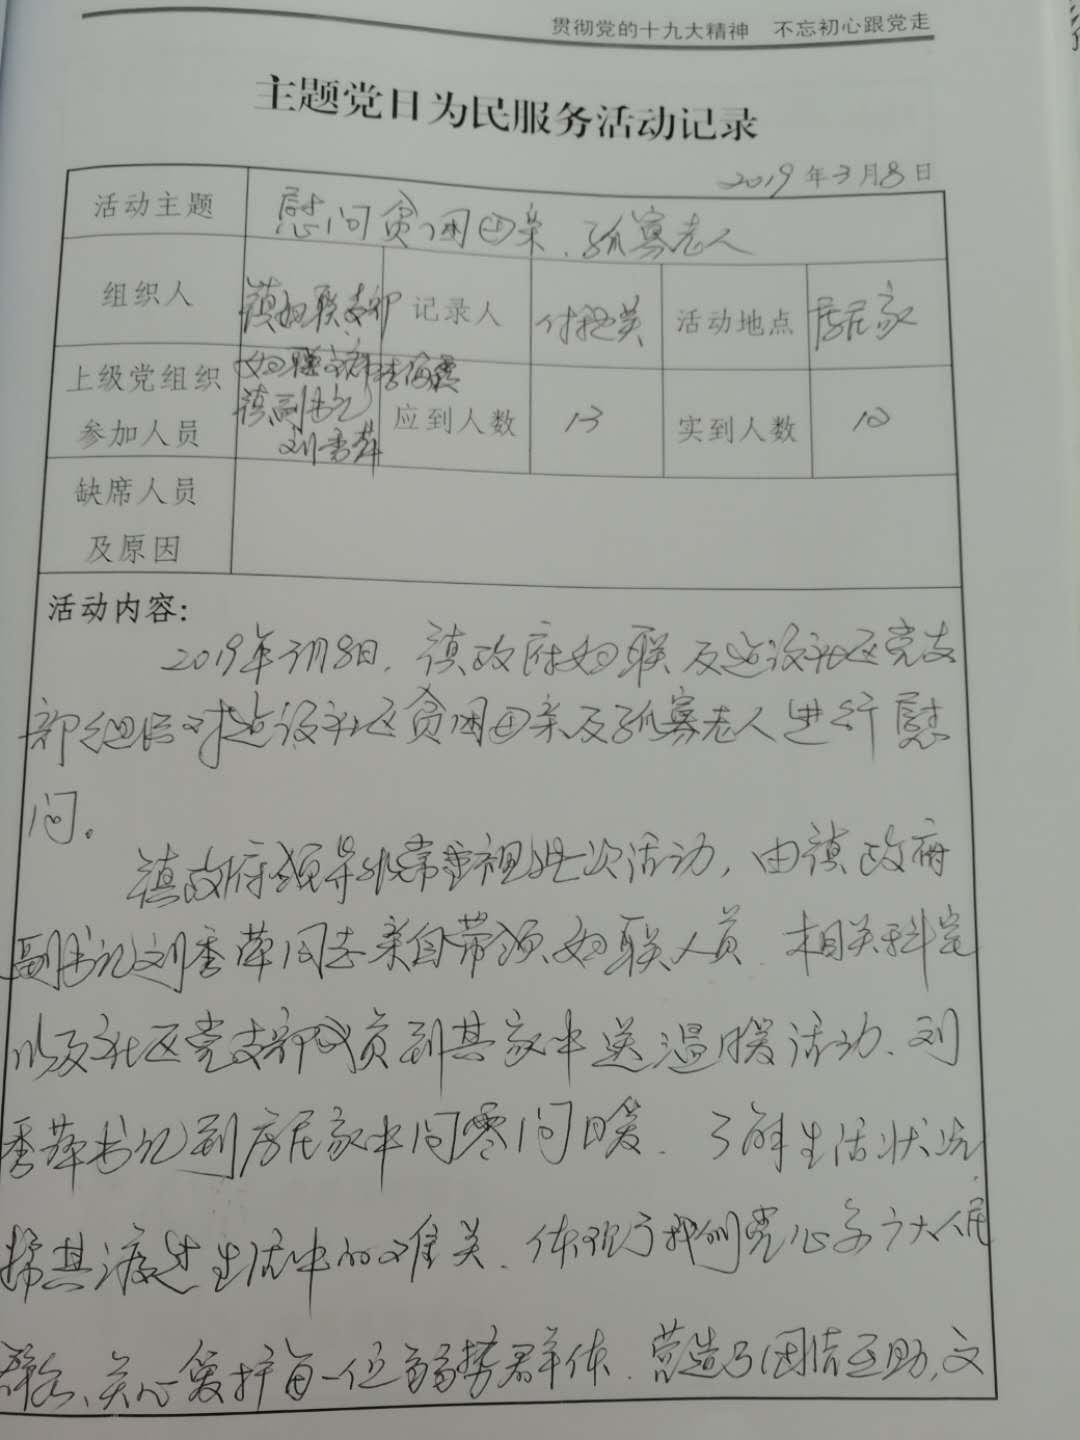 贯彻党的十九大精神 不忘初心跟党走
主题党日为民服务活动记录
2019年3月8日
活动主题 慰问贫困母亲、孤寡老人
组织人 镇妇联支部 记录人 付 英 活动地点 居民家
上级党组织参加人员 妇联主席李 霞 镇副书记 刘秀萍 应到人数 13 实到人数 10
缺席人员及原因
活动内容:
2019年3月8日,镇政府妇联及建设社区党支
部组织对建设社区贫困母亲及孤寡老人进行慰
问。
镇政府领导非常重视此次活动,由镇政府
副书记刘秀萍同志亲自带领妇联人员、相关科室
以及社区党支部成员到其家中送温暖活动、刘
秀萍书记到居民家中问寒问暖、了解生活状况,
帮其渡过生活中的难关、体现了我们党心系广大人民
群众、关心爱护每一位弱势群体、营造了团结互助,文